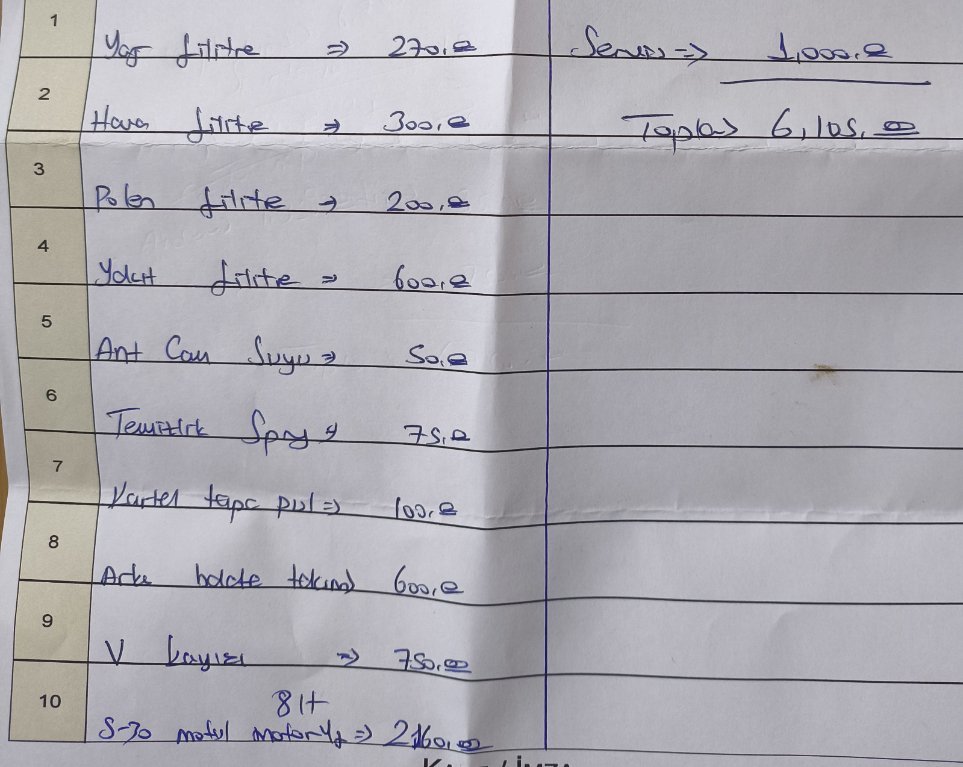 1
Yağ filitre ⇒ 270,00
2
Hava filitre ⇒ 300,00
3
Polen filitre → 200,00
4
Yakıt filitre ⇒ 600,00
5
Ant Cam Suyu ⇒ 50,00
6
Temizlik Spray ⇒ 75,00
7
Karter tapa pul ⇒ 100,00
8
Arka balata takımı 600,00
9
V kayışı ⇒ 750,00
10
8 lt
5-30 motul motor yğ ⇒ 2160,00
Servis ⇒ 1,000,00
Toplam 6,105,00